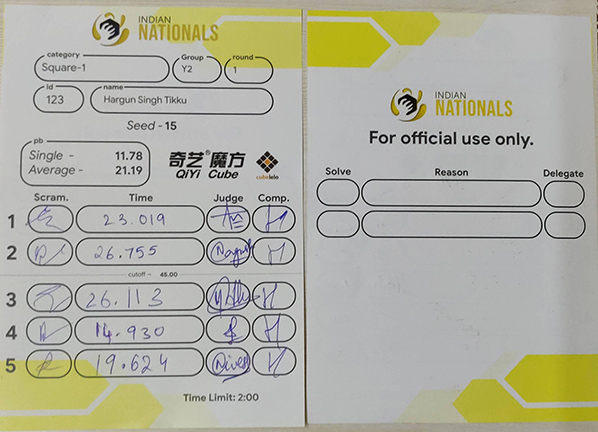 INDIAN
NATIONALS
category Group round
Square-1 Y2 1
Id name
123 Hargun Singh Tikku
Seed - 15
pb
Single - 11.78
Average - 21.19
奇艺®魔方
QiYi Cube
cubelelo
Scram. Time Judge Comp.
1 23.019
2 26.755
cutoff - 45.00
3 26.113
4 14.930
5 19.624
Time Limit: 2:00
INDIAN
NATIONALS
For official use only.
Solve Reason Delegate